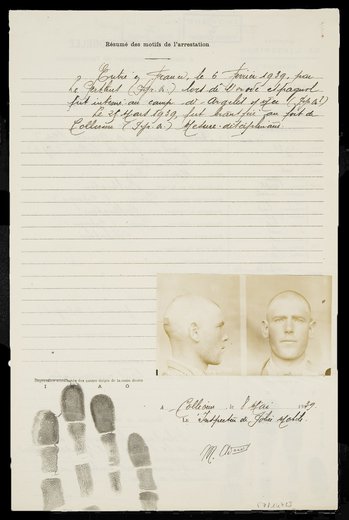 Résumé des motifs de l'arrestation
Entré en France, le 6 Février 1939, par
Le Perthus (Pyr. Or.) lors de l'exode espagnol
fut interné au camp d'Argelès s/mer (Pyr. Or.)
Le 25 Mars 1939, fut transféré au fort de
Collioure (Pyr. Or.) Mesure disciplinaire.
des quatre doigts de la main droite
I M A O
A Collioure, le 8 Mai 1939
Le Inspecteur de Police Mobile
M.